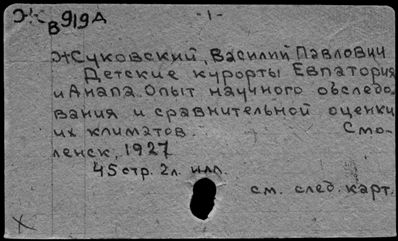 Ж
В919Д
-1-
Жуковский, Василий Павлович
Детские курорты Евпатория
и Анапа. Опыт научного обследо-
вания и сравнительной оценки
их климатов. Смо-
ленск, 1927
45 стр. 2л. илл.
см. след. карт.
X